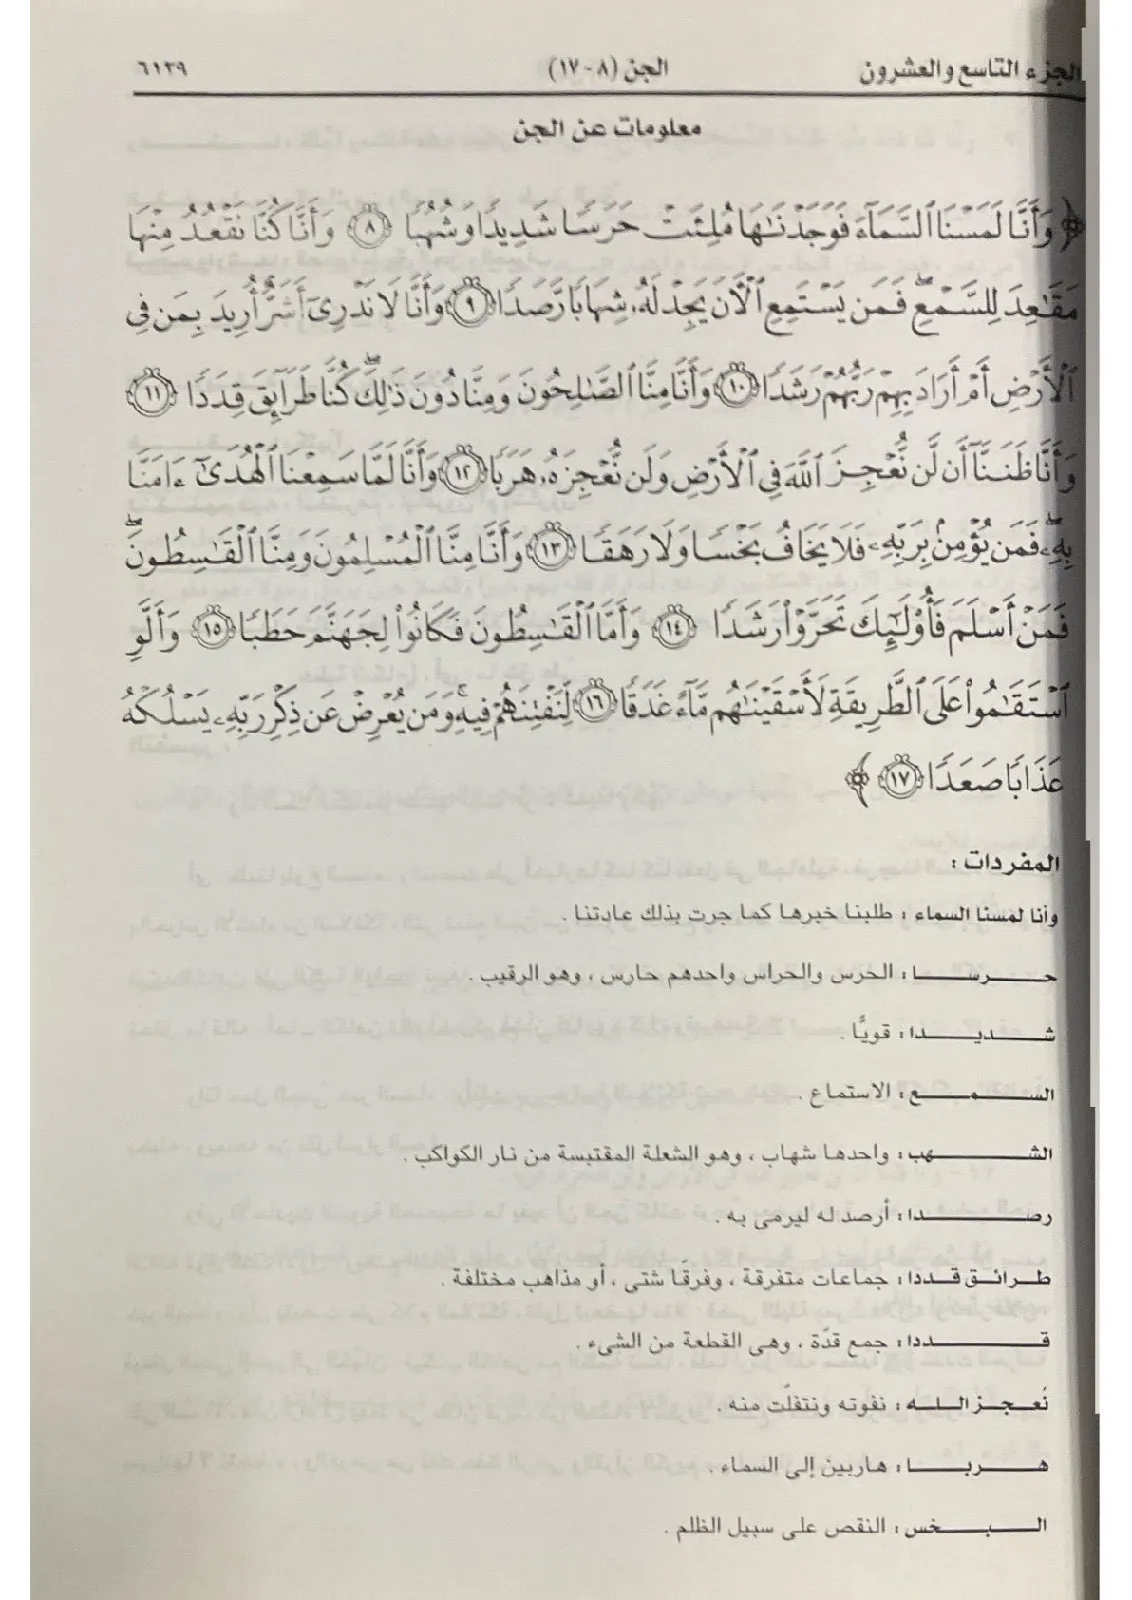 الجزء التاسع والعشرون
الجن (٨ - ١٧)
٦١٣٩
معلومات عن الجن
﴿ وَأَنَّا لَمَسْنَا ٱلسَّمَآءَ فَوَجَدْنَٰهَا مُلِئَتْ حَرَسًا شَدِيدًا وَشُهُبًا ٨ وَأَنَّا كُنَّا نَقْعُدُ مِنْهَا
مَقَٰعِدَ لِلسَّمْعِ ۖ فَمَن يَسْتَمِعِ ٱلْأَنَ يَجِدْ لَهُۥ شِهَابًا رَّصَدًا ٩ وَأَنَّا لَا نَدْرِىٓ أَشَرٌّ أُرِيدَ بِمَن فِى
ٱلْأَرْضِ أَمْ أَرَادَ بِهِمْ رَبُّهُمْ رَشَدًا ١٠ وَأَنَّا مِنَّا ٱلصَّٰلِحُونَ وَمِنَّا دُونَ ذَٰلِكَ ۖ كُنَّا طَرَآئِقَ قِدَدًا ١١
وَأَنَّا ظَنَنَّآ أَن لَّن نُّعْجِزَ ٱللَّهَ فِى ٱلْأَرْضِ وَلَن نُّعْجِزَهُۥ هَرَبًا ١٢ وَأَنَّا لَمَّا سَمِعْنَا ٱلْهُدَىٰٓ ءَامَنَّا
بِهِۦ ۖ فَمَن يُؤْمِنۢ بِرَبِّهِۦ فَلَا يَخَافُ بَخْسًا وَلَا رَهَقًا ١٣ وَأَنَّا مِنَّا ٱلْمُسْلِمُونَ وَمِنَّا ٱلْقَٰسِطُونَ ۖ
فَمَنْ أَسْلَمَ فَأُو۟لَٰٓئِكَ تَحَرَّوْا۟ رَشَدًا ١٤ وَأَمَّا ٱلْقَٰسِطُونَ فَكَانُوا۟ لِجَهَنَّمَ حَطَبًا ١٥ وَأَلَّوِ
ٱسْتَقَٰمُوا۟ عَلَى ٱلطَّرِيقَةِ لَأَسْقَيْنَٰهُم مَّآءً غَدَقًا ١٦ لِّنَفْتِنَهُمْ فِيهِ ۚ وَمَن يُعْرِضْ عَن ذِكْرِ رَبِّهِۦ يَسْلُكْهُ
عَذَابًا صَعَدًا ١٧ ﴾
المفردات :
وأنا لمسنا السماء : طلبنا خبرها كما جرت بذلك عادتنا .
حرسا : الحرس والحراس واحدهم حارس ، وهو الرقيب .
شديدا : قويًّا .
السمع : الاستماع .
الشهب : واحدها شهاب ، وهو الشعلة المقتبسة من نار الكواكب .
رصدا : أرصد له ليرمى به .
طرائق قددا : جماعات متفرقة ، وفرقًا شتى ، أو مذاهب مختلفة .
قددا : جمع قدّة ، وهى القطعة من الشيء .
نُعجز الله : نفوته ونتفلّت منه .
هربا : هاربين إلى السماء .
البخس : النقص على سبيل الظلم .